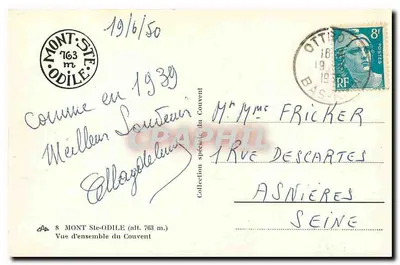 19/6/50
MONT·STE
763
m
ODILE·
Comme en 1939
Meilleur Souvenir
8 MONT Ste-ODILE (alt. 763 m.)
Vue d'ensemble du Couvent
Collection spéciale du Couvent
8F
POSTES
RF
OTT
18
19
BAS
Mr Mme FRICKER
1 RUE DESCARTES
ASNIÈRES
SEINE